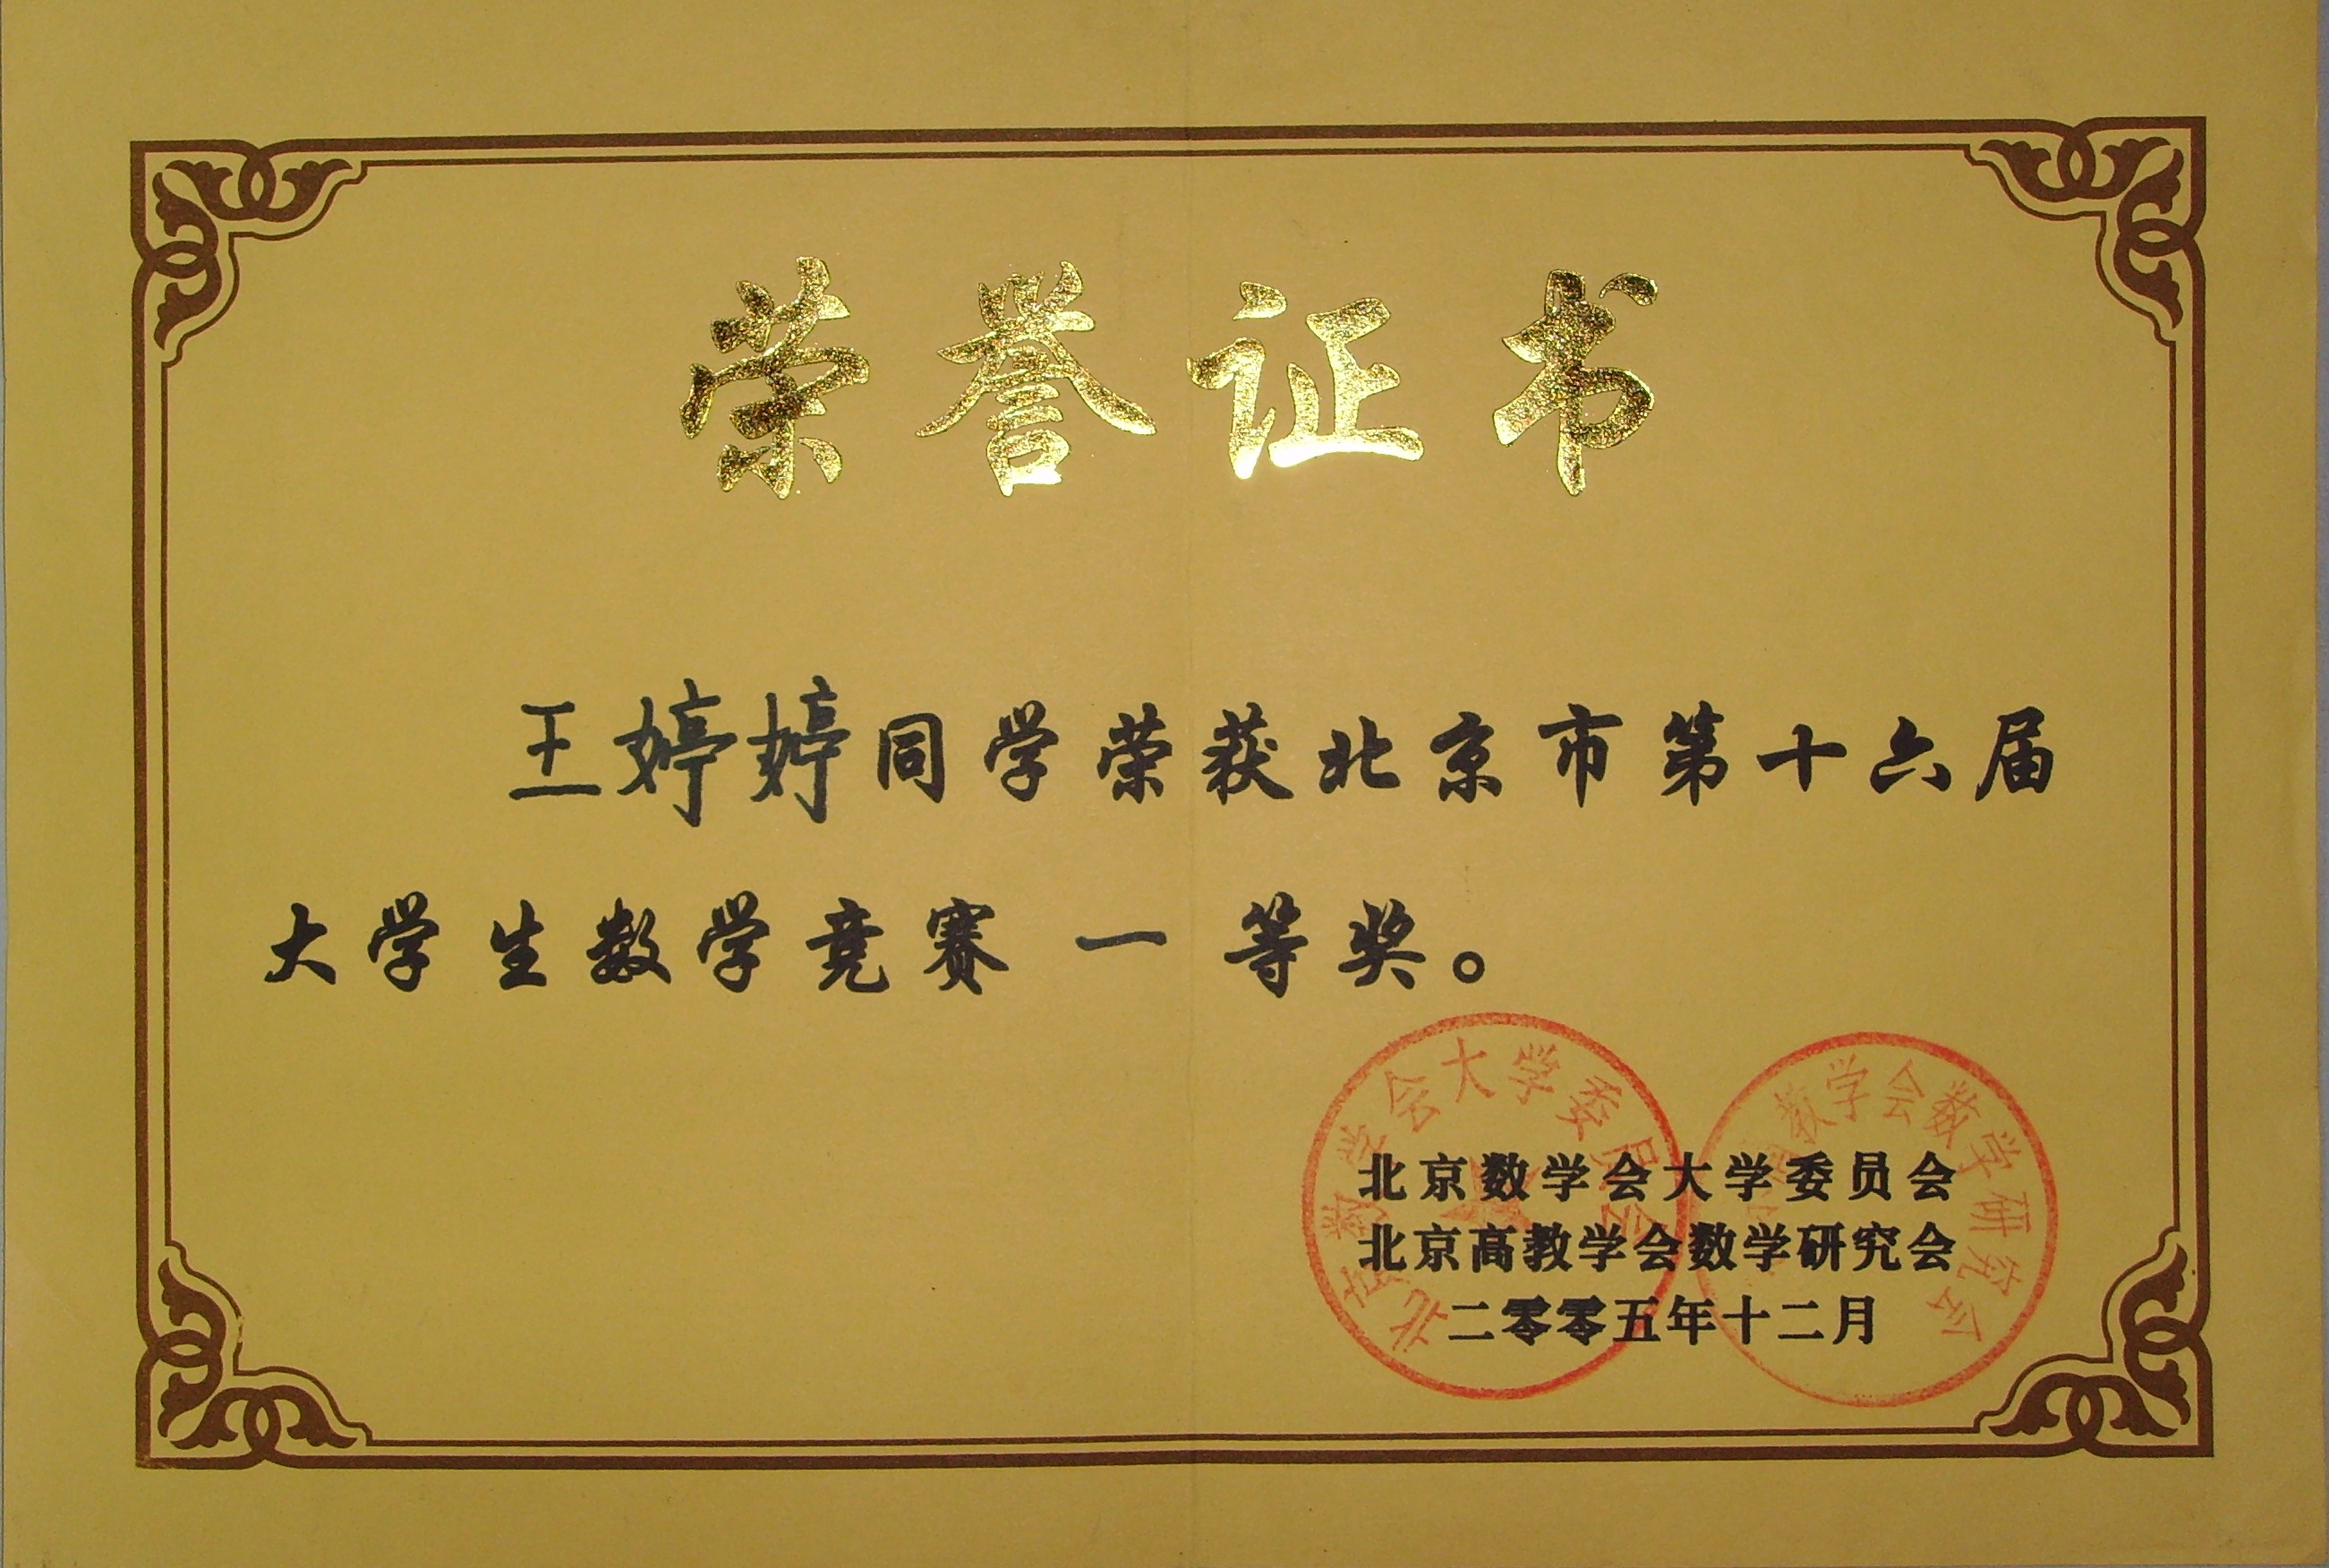 荣誉证书
王婷婷同学荣获北京市第十六届
大学生数学竞赛一等奖。
北京数学会大学委员会
北京高教学会数学研究会
二零零五年十二月
北京数学会大学委员会
教学会数学研究会